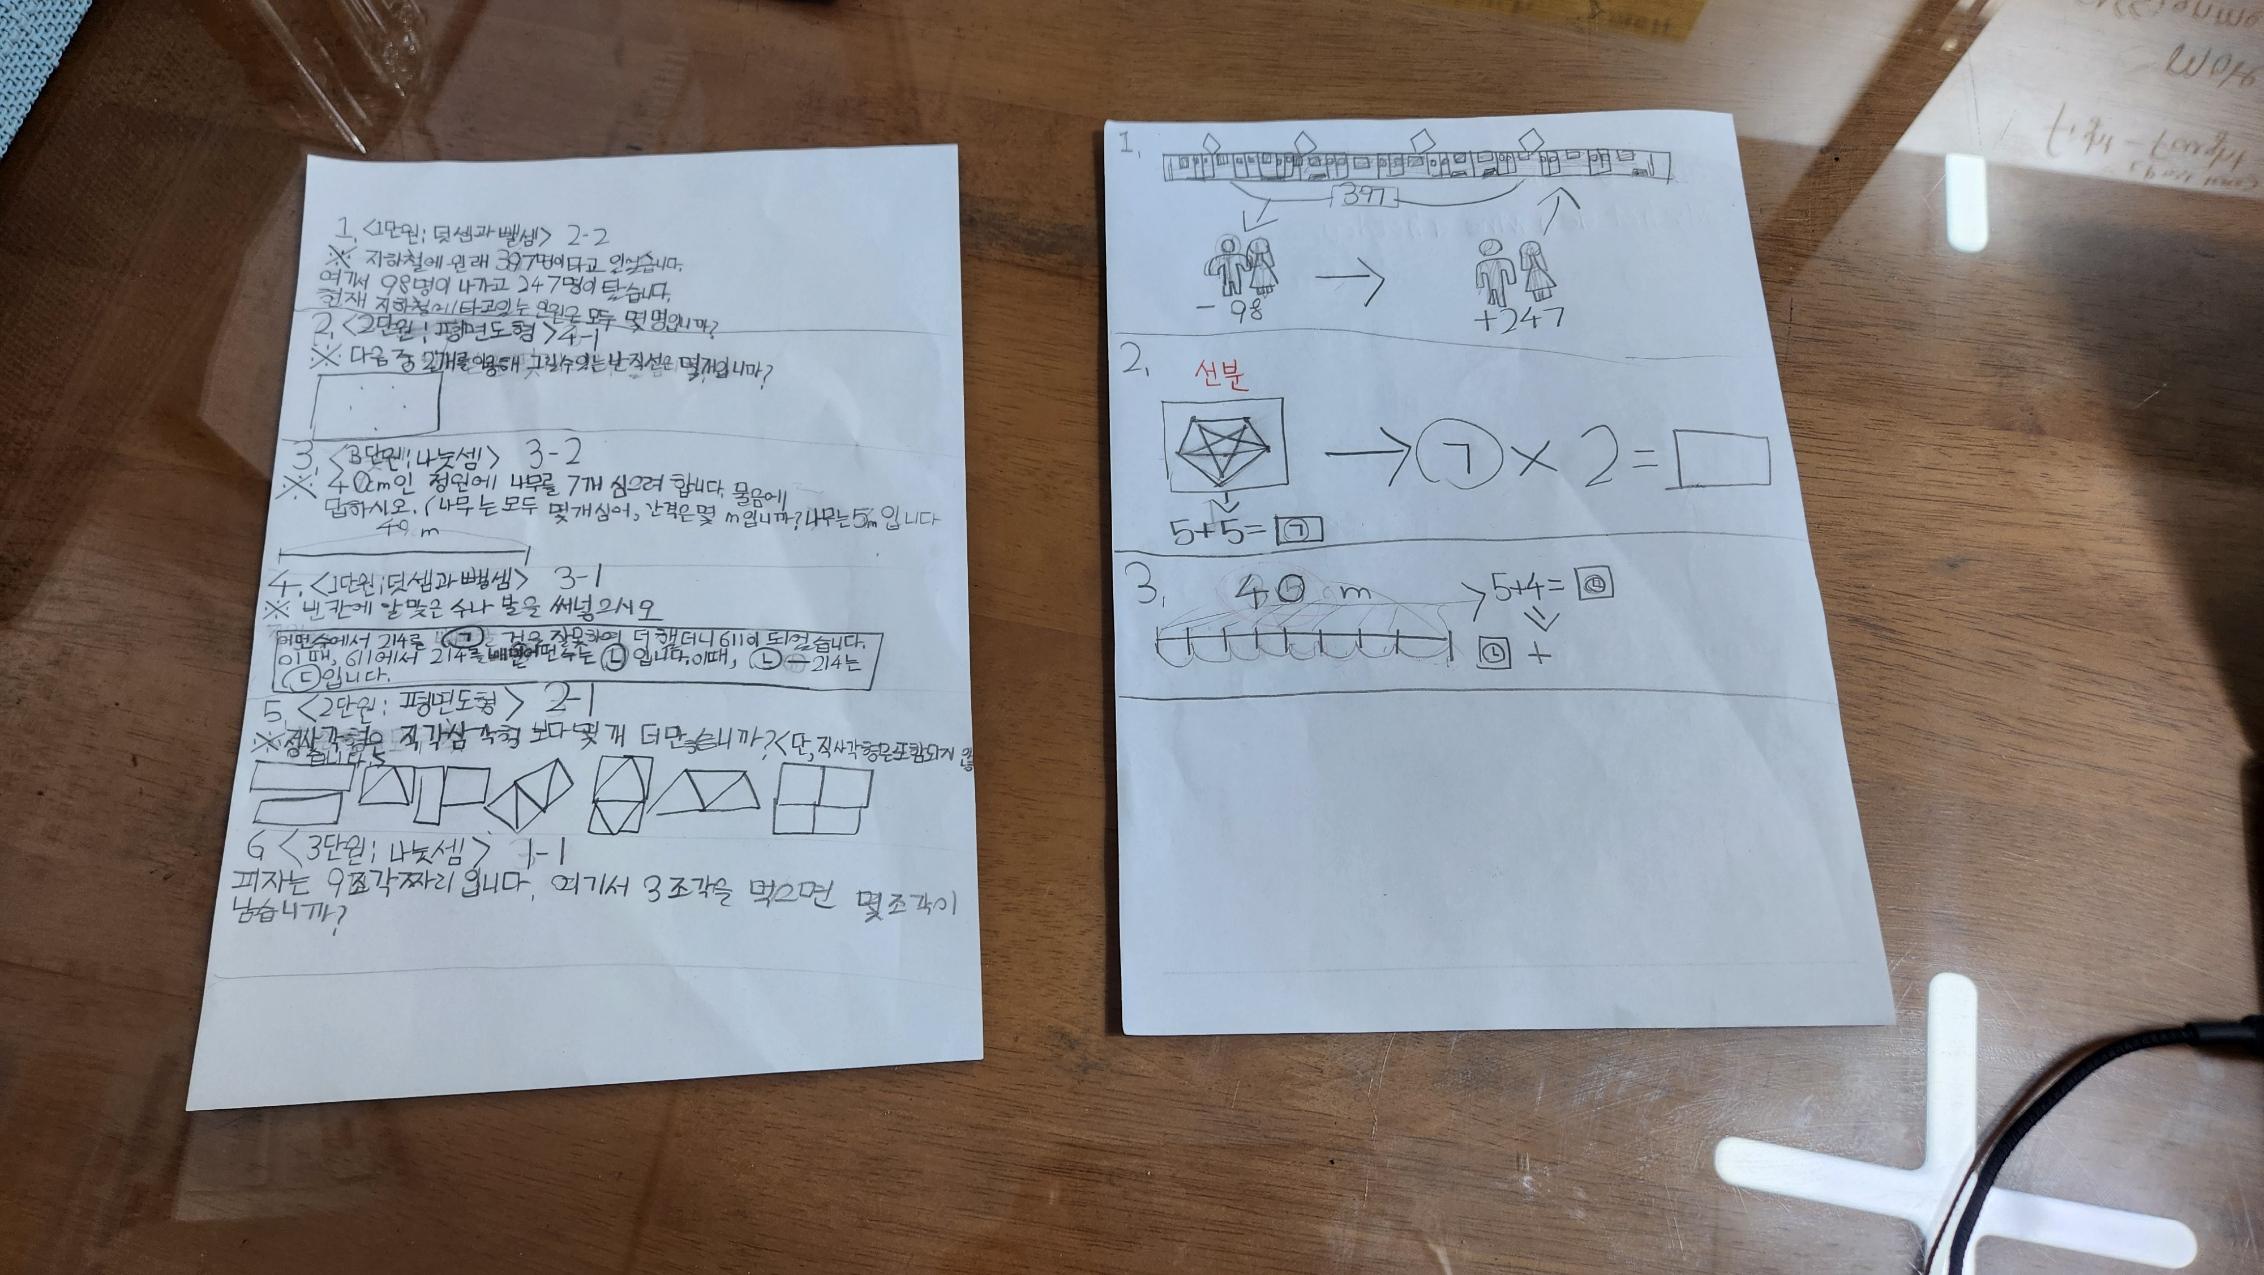 1. <1단원; 덧셈과 뺄셈> 2-2
※ 지하철에 원래 397명이 타고 있었습니다.
여기서 98명이 나가고 247명이 탔습니다.
현재 지하철에 타고있는 인원은 모두 몇 명입니까?
2. <2단원; 평면도형> 4-1
※ 다음 중 2개를 이용해 그릴수있는 반직선은 몇개입니까?
3. <3단원; 나눗셈> 3-2
※ 40cm인 정원에 나무를 7개 심으려 합니다. 물음에
답하시오. (나무는 모두 몇개심어, 간격은 몇 m입니까? 나무는 5m입니다
40 m
4. <1단원; 덧셈과 뺄셈> 3-1
※ 빈칸에 알맞은 수나 말을 써넣으시오
어떤수에서 214를 ㉠ 것을 잘못하여 더했더니 611이 되었습니다.
이때, 611에서 214를 어떤수는 ㉡입니다. 이때, ㉡ - 214는
㉢입니다.
5 <2단원; 평면도형> 2-1
※정사각형은 직각삼각형 보다 몇개 더 많습니까? <단, 직사각형은 포함되지 않
습니다.
6 <3단원; 나눗셈> 1-1
피자는 9조각짜리입니다. 여기서 3조각을 먹으면 몇조각이
남습니까?
1.
397
-98
+247
2.
선분
㉠ × 2 =
5+5= ㉠
3.
40 m
5+4=
㉡ +